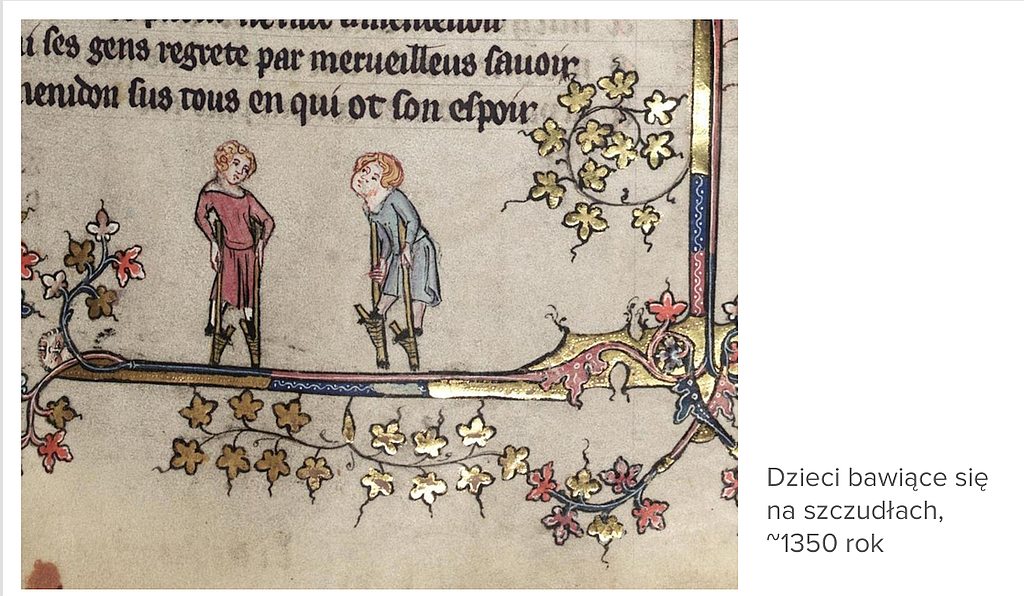 i ses gens regrete par merueilleus sauoir
menidon sus tous en qui ot son espoir
Dzieci bawiące się
na szczudłach,
~1350 rok